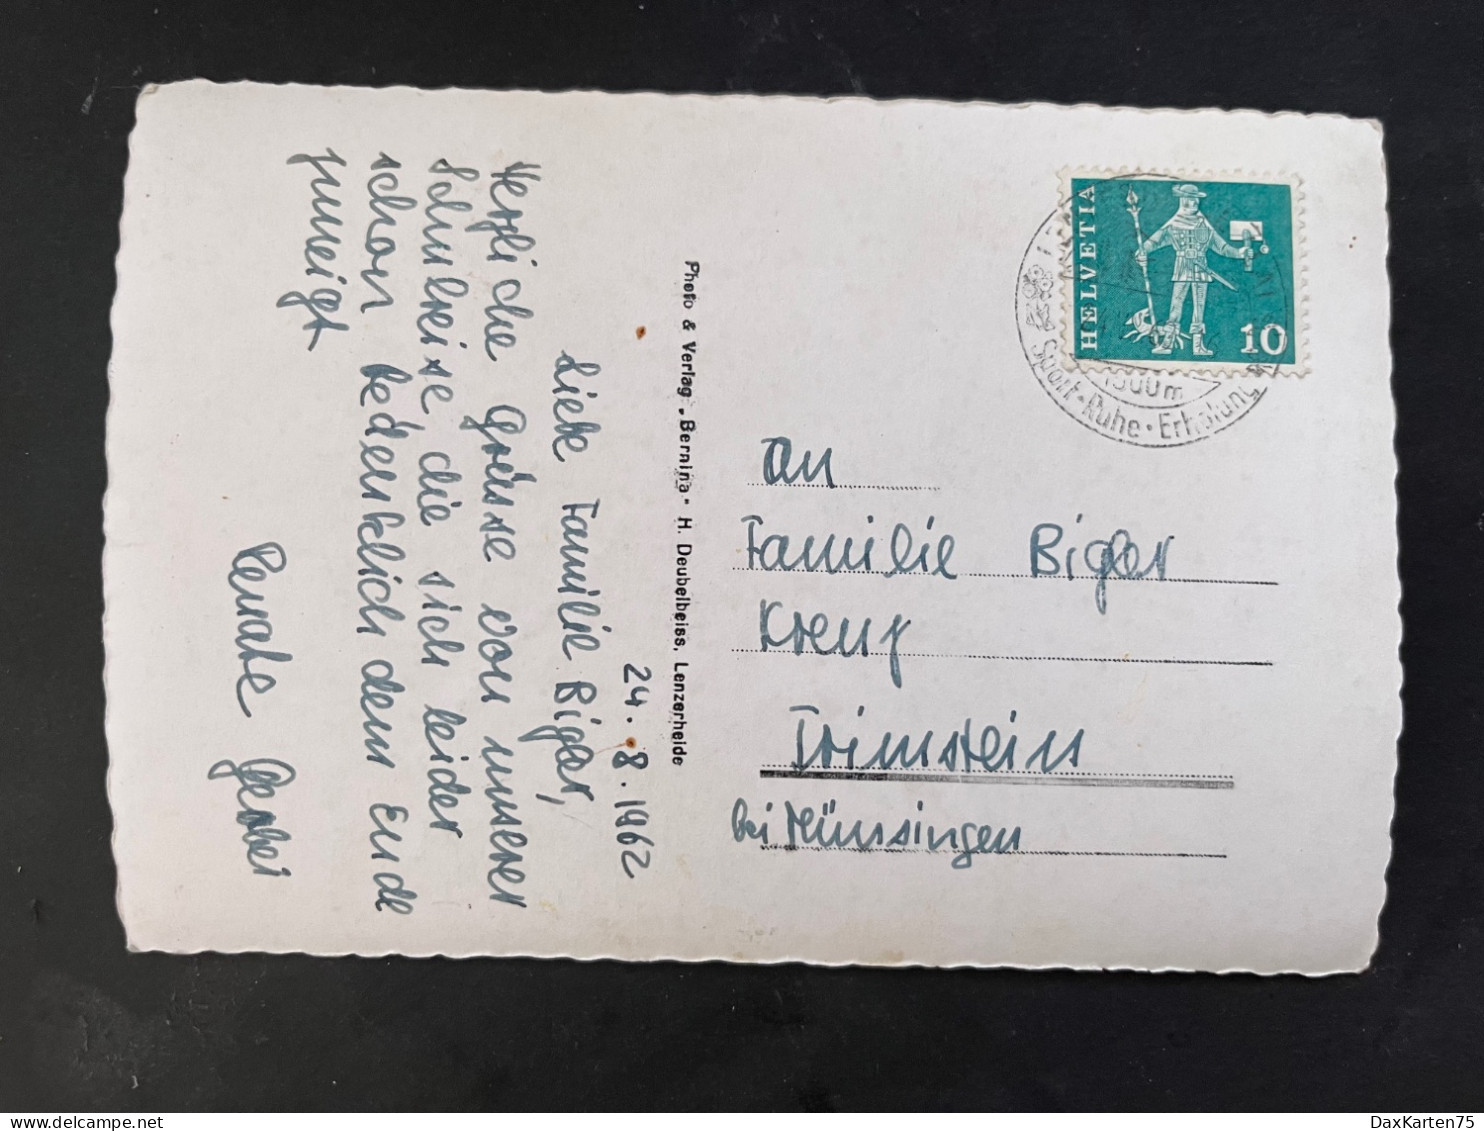 24.8.1962
Liebe Familie Bigler,
Herzliche Grüsse von unserer
Schulreise, die sich leider
schon bedenklich dem Ende
zuneigt
Renate
Photo & Verlag „Bernina“ H. Deubelbeiss, Lenzerheide
HELVETIA
10
1500m
Sport · Ruhe · Erholung
An
Familie Bigler
Kreuz
Trimstein
bei Münsingen
DaxKarten75